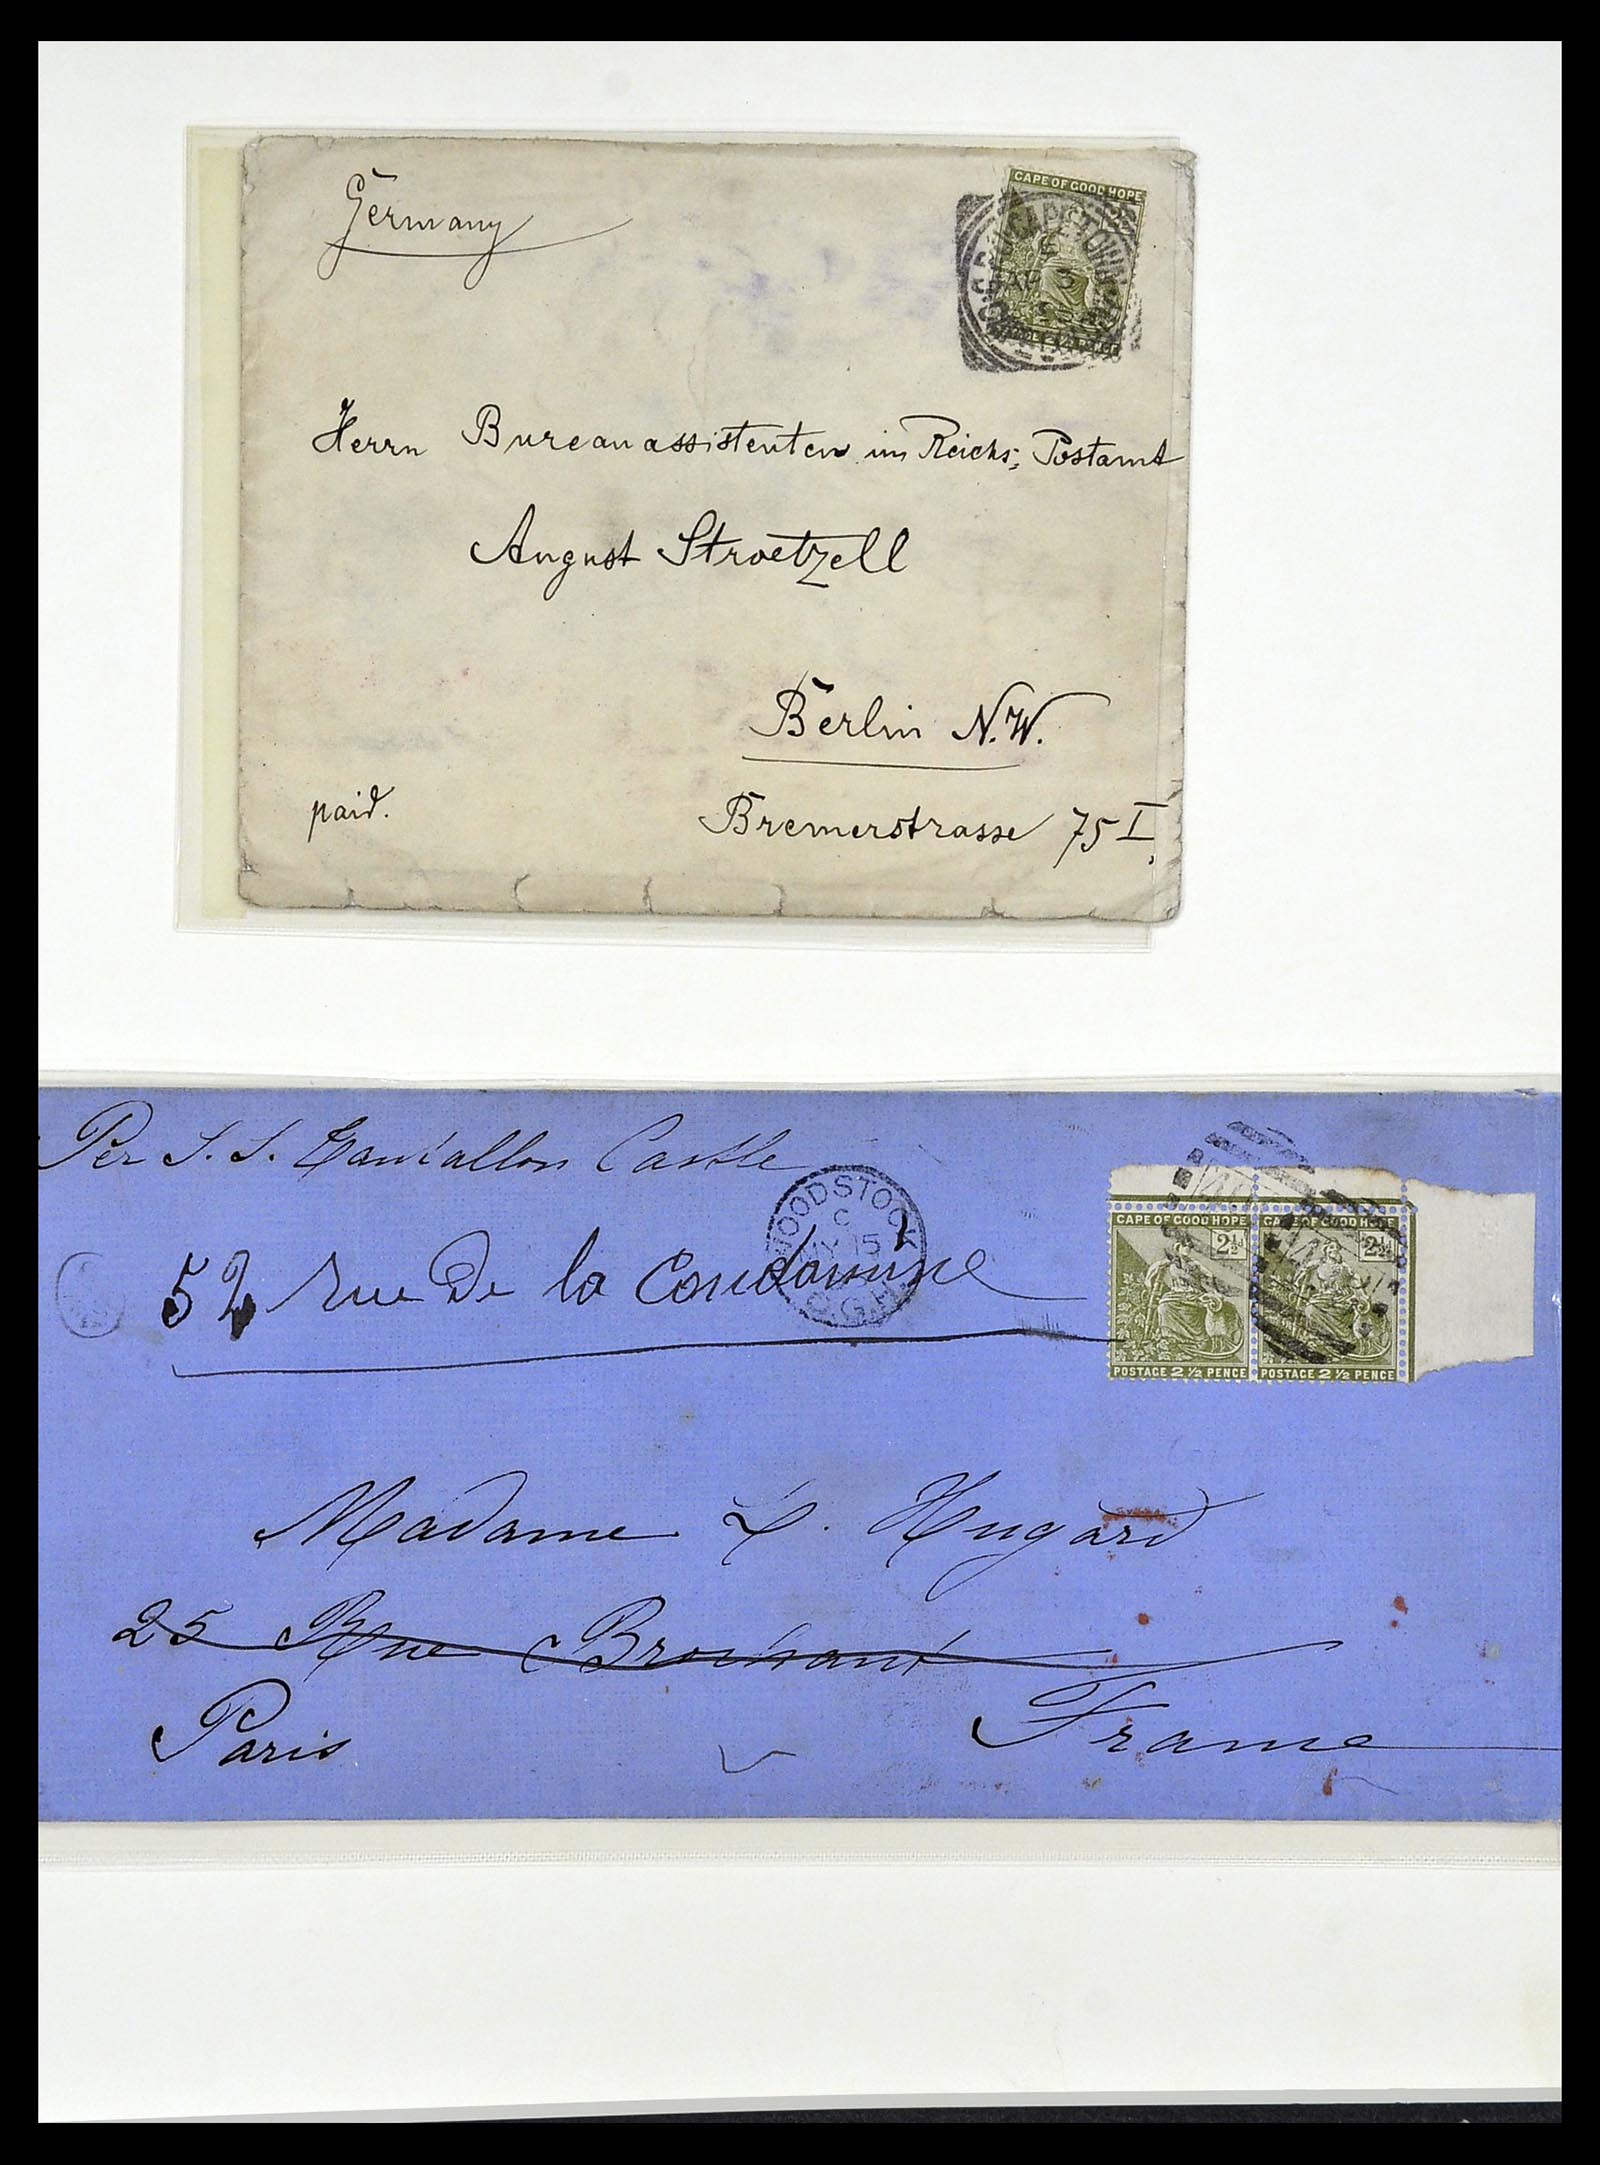 Germany
CAPE OF GOOD HOPE
CAPETOWN
AP 3
Herrn Bureauassistenten im Reichs-Postamt
August Stroetzell
Berlin N.W.
paid.
Bremerstrasse 75 I
Per S. S. Tantallon Castle
WOODSTOCK
C
MY 15
C.G.H.
CAPE OF GOOD HOPE
2½d
POSTAGE 2½ PENCE
CAPE OF GOOD HOPE
2½d
POSTAGE 2½ PENCE
52 rue De la Condamine
Madame L. Hugard
25 Rue Brochant
Paris
France